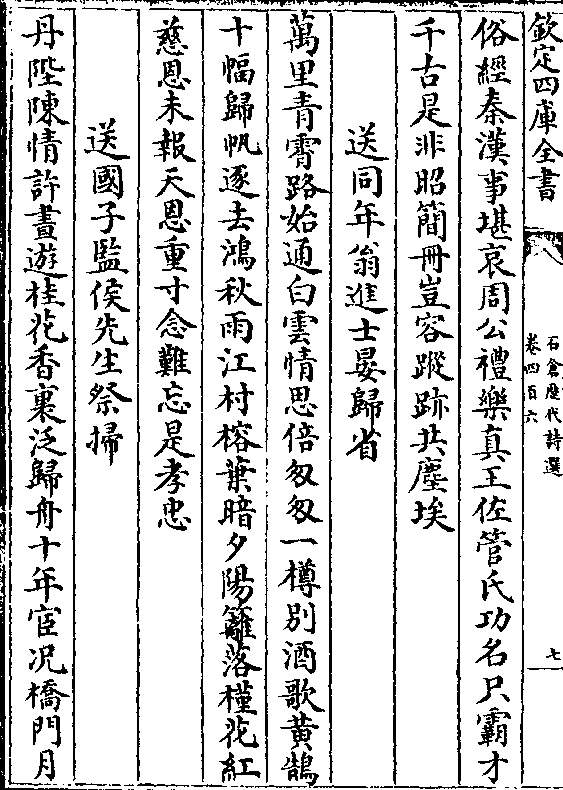 欽定四庫全書
石倉歴代詩選
卷四百六
七
俗經秦漢事堪哀周公禮樂真王佐管氏功名只霸才
千古是非昭簡冊豈容蹤跡共塵埃
送同年翁進士晏歸省
萬里青霄路始通白雲情思倍匆匆一樽別酒歌黄鵠
十幅歸帆逐去鴻秋雨江村榕葉暗夕陽籬落槿花紅
慈恩未報天恩重寸念難忘是孝忠
送國子監侯先生祭掃
丹陛陳情許晝遊桂花香裏泛歸舟十年宦况橋門月